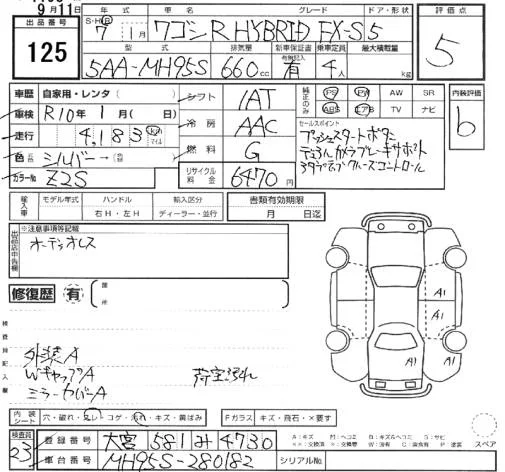 9月11日
出品番号
125
年式 車名 グレード ドア・形状
S・H・R 7年 1月 ワゴンR HYBRID FX-S 5
型式 排気量 新車保証書 乗車定員 最大積載量
5AA-MH95S 660cc 有 4人 kg
評価点
5
車歴 自家用・レンタ( )
車検 R10年 1月( 日)
走行 4,183 km マイル
色 シルバー→
カラーNo Z2S
シフト IAT
冷房 AAC
燃料 G
リサイクル料金 6470円
純正のみ PS PW AW SR
ABS エアB TV ナビ
セールスポイント
プッシュスタートボタン
デュアルカメラブレーキサポート
アダプティブクルーズコントロール
内装評価
b
輸入車 モデル年式 ハンドル 輸入区分
右H・左H ディーラー・並行
書類有効期限
月 日迄
出品店申告欄
※注意事項等記載
オーディオレス
修復歴 有 箇所
A1
A1 A1
A1
検査員記入欄
外装A
WキャップA
ミラーカバーA
荷室汚れ
内装シート 穴・破れ・スレ・コゲ・汚れ・キズ・黄ばみ
Fガラス キズ・飛石・×要す
検査員
23
登録番号 大宮 581 み 4730
車台番号 MH95S-280182
シリアルNo.
A:キズ M:ヘコミ B:キズ&ヘコミ S:サビ
スペア